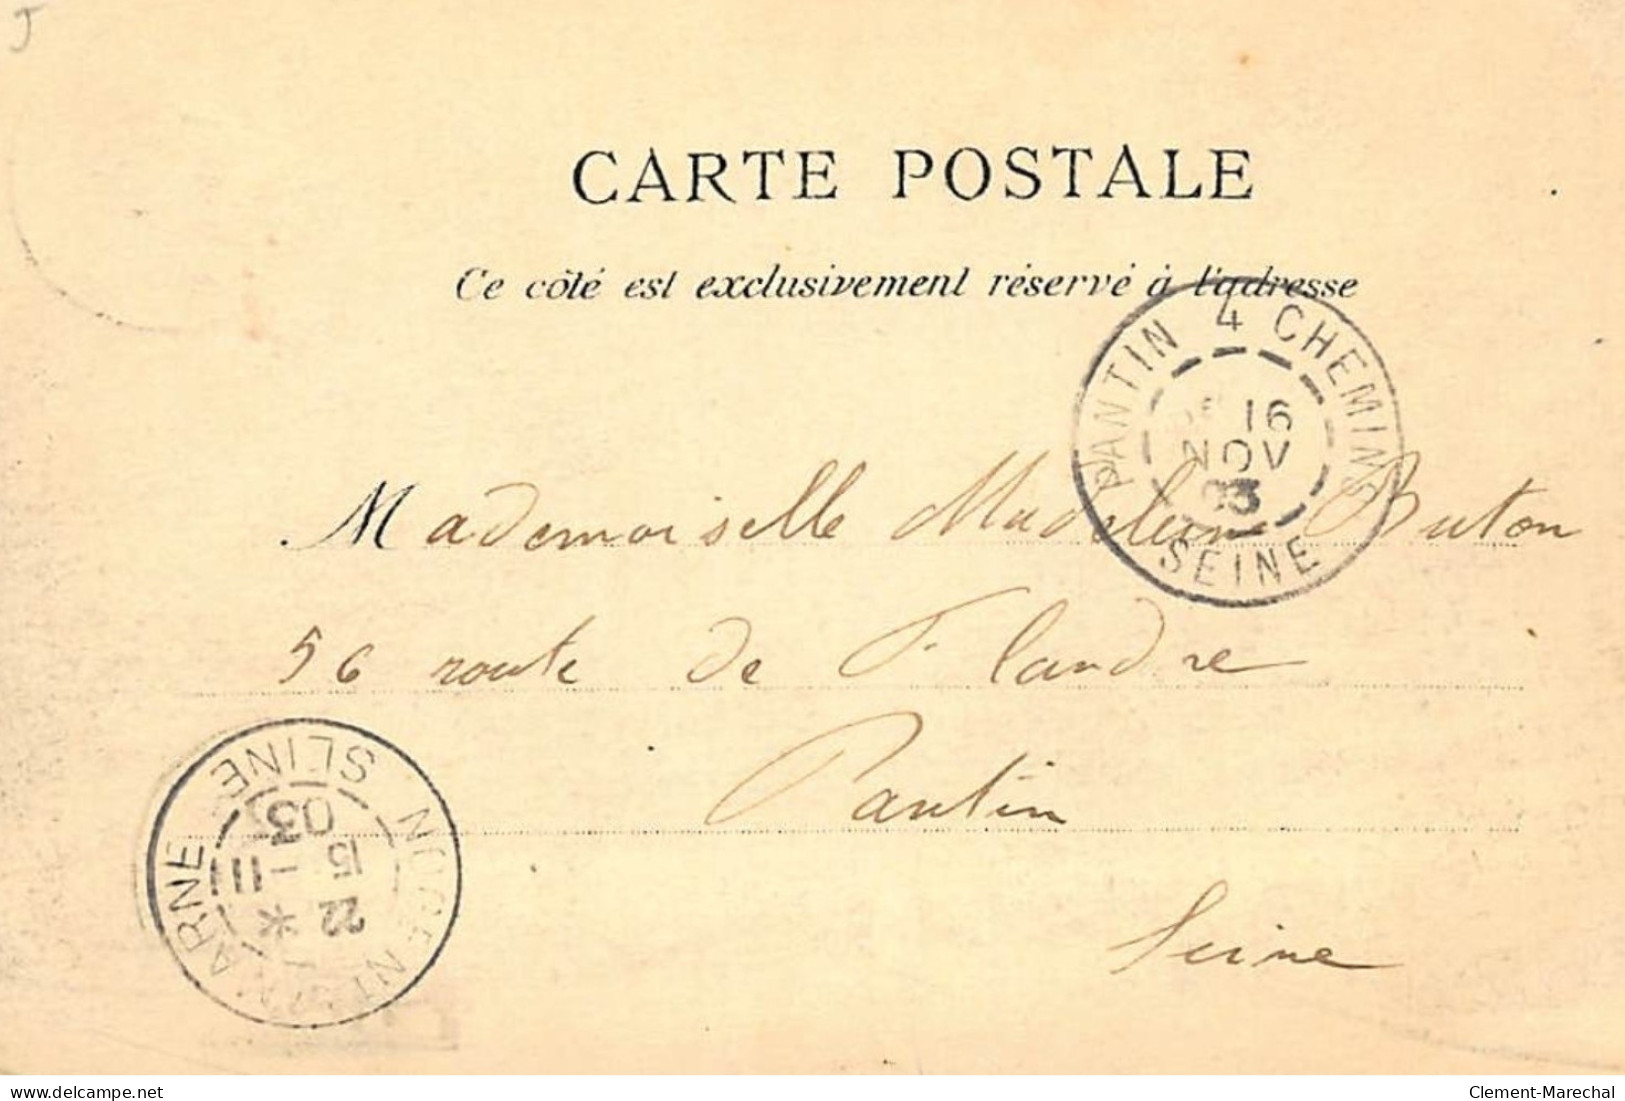 CARTE POSTALE
Ce côté est exclusivement réservé à l'adresse
PANTIN 4 CHEMINS
16
NOV
03
SEINE
Mademoiselle Madeleine Buton
56 route de Flandre
Pantin
Seine
NOGENT-SUR-MARNE SEINE
22 *
15 - 11
03
delcampe.net
Clement-Marechal